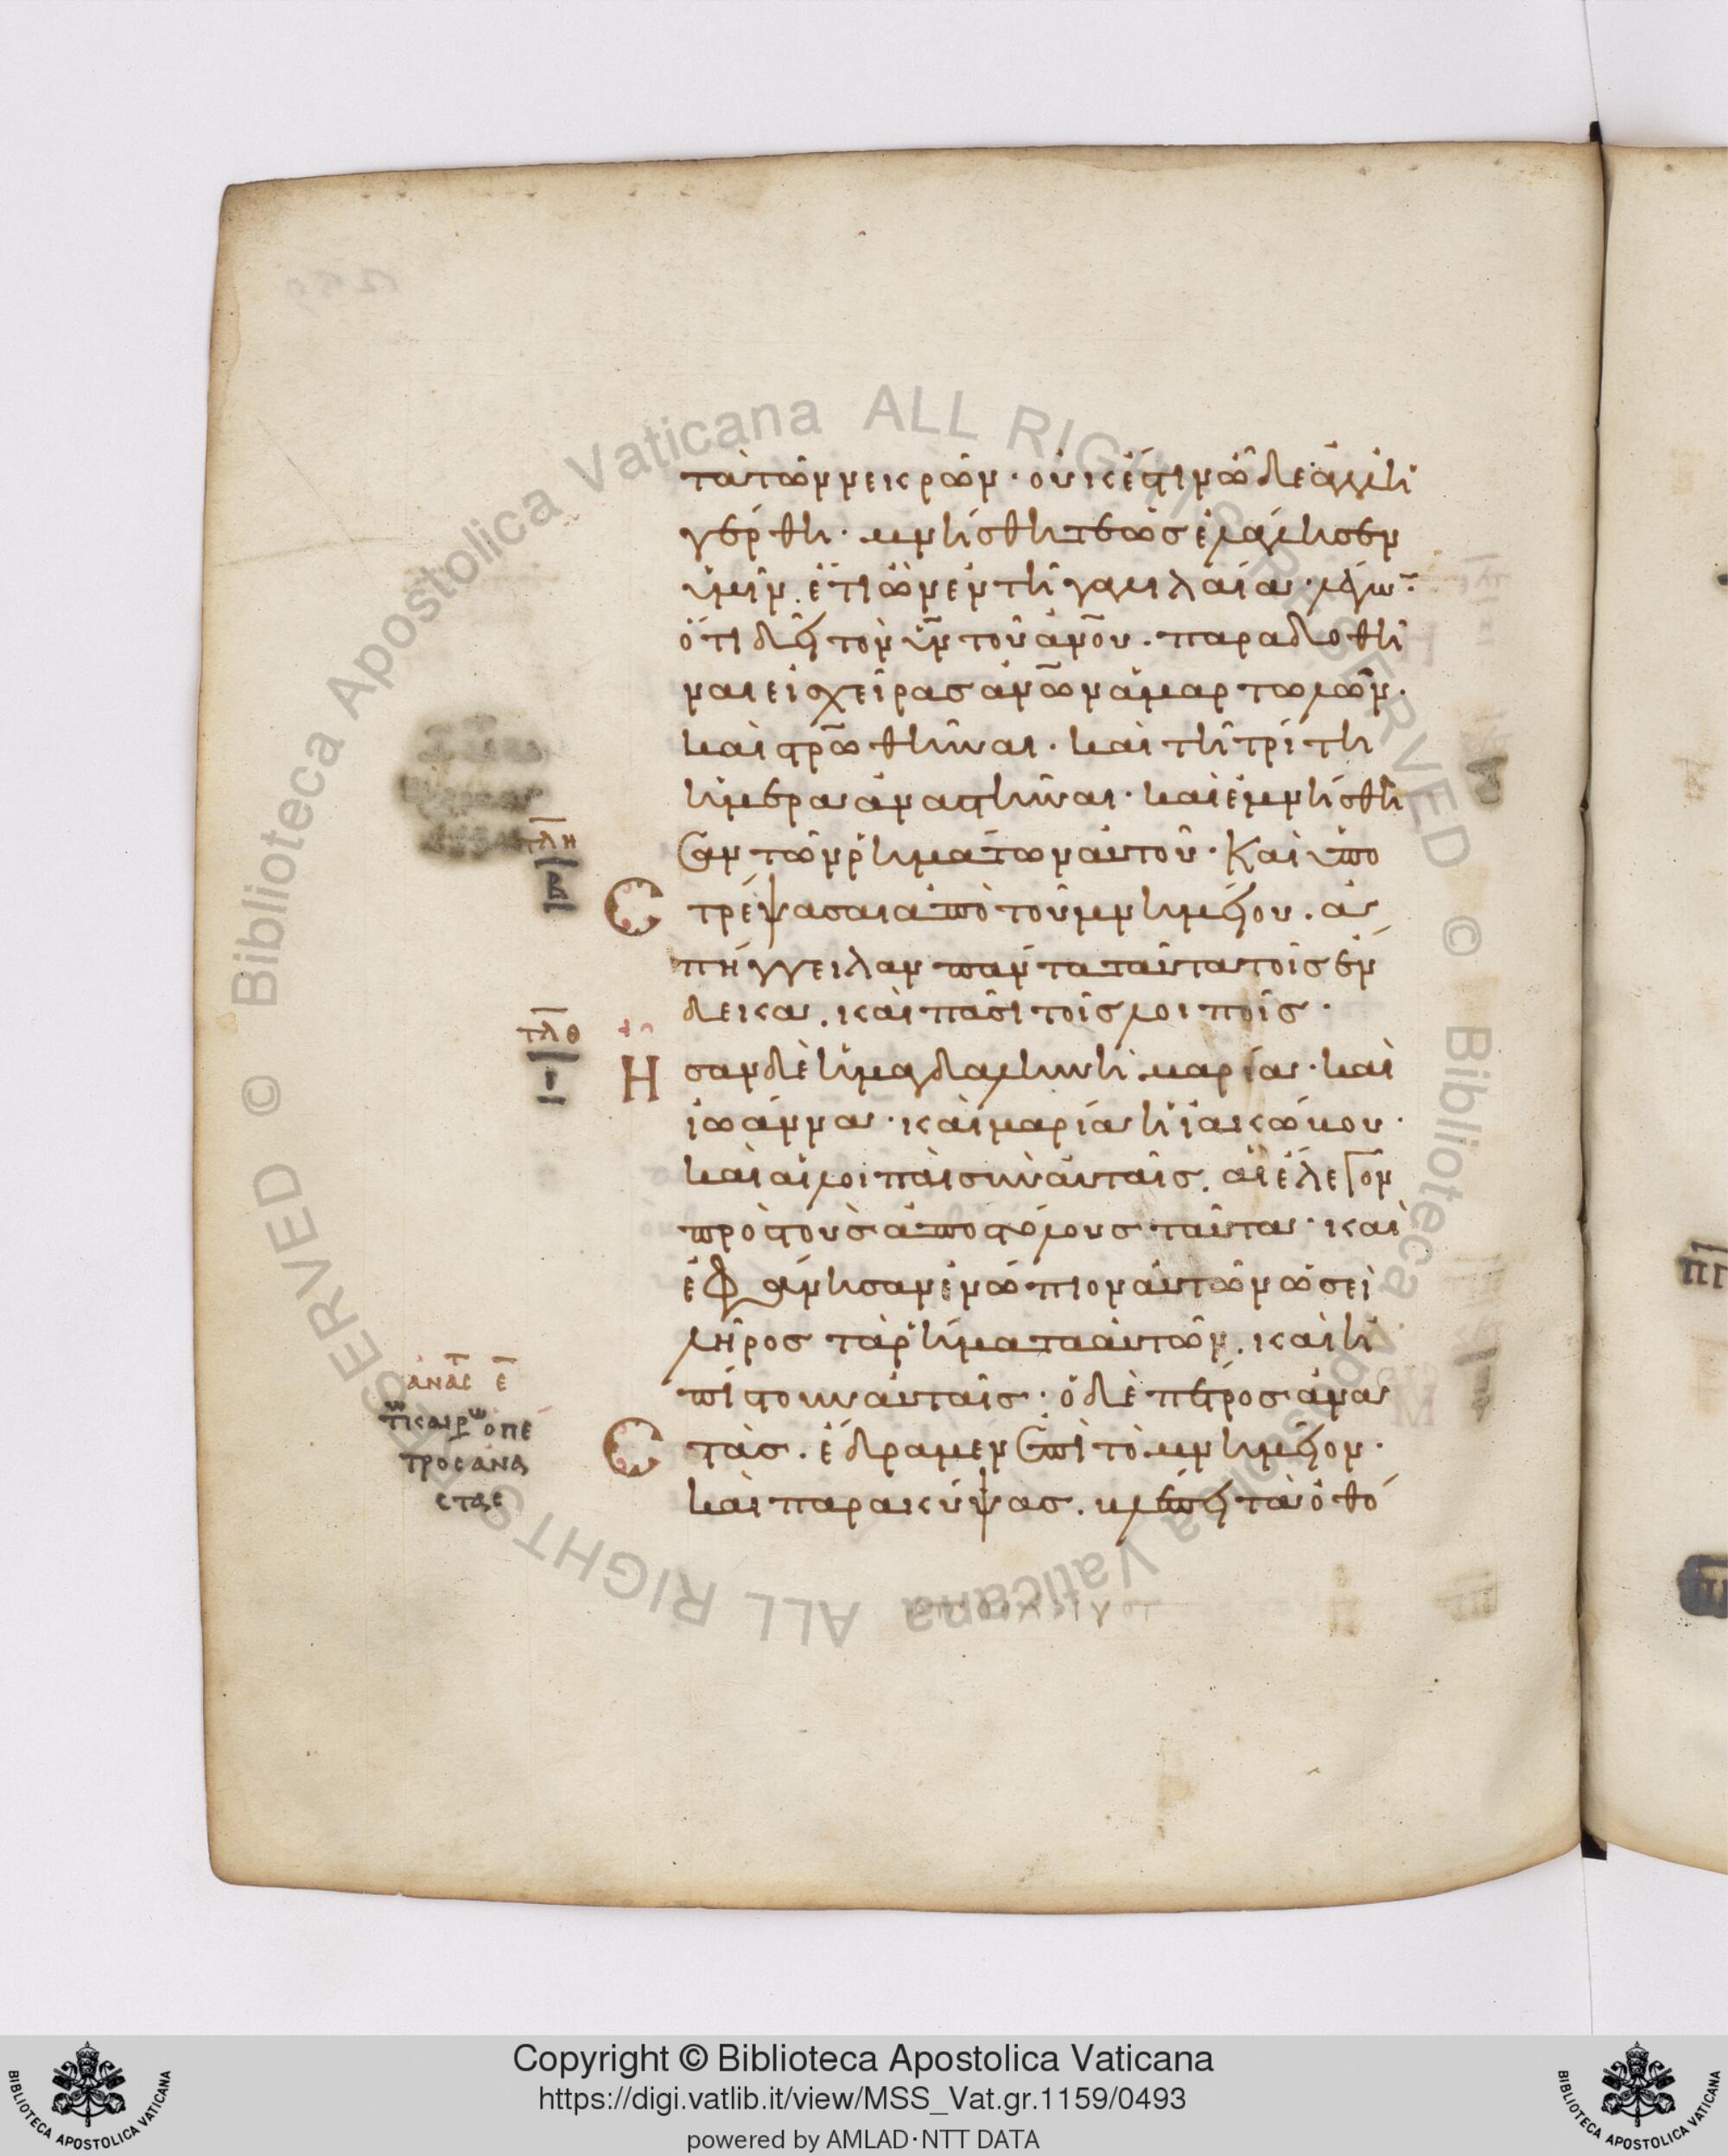 τὰ τῶν νεκρῶν· οὐκ ἔστιν ὧδε ἀλλ ἠ
γέρθη· μνήσθητε ὡς ἐλάλησεν
ὑμῖν. ἔτι ὢν ἐν τῆ γαλιλαία· λέγω̅·
ὅτι δεῖ τὸν υ̅ν̅ τοῦ α̅ν̅ο̅υ̅. παραδοθῆ
ναι εἰς χεῖρας α̅ν̅ω̅ν̅ ἁμαρτωλῶν.
καὶ σ̅ρ̅ω̅θῆναι· καὶ τῆ τρίτη
ἡμέρα ἀναστῆναι· καὶ ἐμνήσθη
σαν τῶν ῥημάτων αὐτοῦ· Καὶ ὑπο
C τρέψασαι ἀπὸ τοῦ μνημείου. ἀ
πήγγειλαν πάντα ταῦτα τοῖς ἕν
δεκα. καὶ πᾶσι τοῖς λοιποῖς·
Η σαν δὲ ἡ μαγδαληνὴ μαρία· καὶ
ἰωάννα· καὶ μαρία ἡ ἰακώβου·
καὶ αἱ λοιπαὶ σὺν αὐταῖς. αἳ ἔλεγον
πρὸς τοὺς ἀποστόλους ταῦτα· καὶ
ἐφάνησαν ἐνώπιον αὐτῶν ὡσεὶ
λῆρος τὰ ῥήματα αὐτῶν. καὶ ἠ
πίστουν αὐταῖς· ὁ δὲ πέτρος ἀνα
C τὰς. ἔδραμεν ἐπὶ τὸ μνημεῖον·
καὶ παρακύψας. βλέπει τὰ ὀθό
τλη
β
τλθ
ι
ἀναστ ε
τω καιρω ο πέ
τρος ἀνα
στας
Copyright © Biblioteca Apostolica Vaticana
https://digi.vatlib.it/view/MSS_Vat.gr.1159/0493
powered by AMLAD·NTT DATA
BIBLIOTECA APOSTOLICA VATICANA
BIBLIOTECA APOSTOLICA VATICANA
© Biblioteca Apostolica Vaticana ALL RIGHTS RESERVED
© Biblioteca Apostolica Vaticana ALL RIGHTS RESERVED